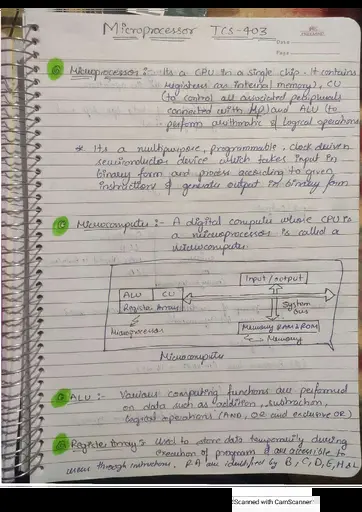 Microprocessor TCS-403
Date
Page
Microprocessor :- Its a CPU in a single chip. It contains
registers (as internal memory), CU
(to control all associated peripherals
connected with MP) and ALU (to
perform arithmatic & logical operations
* Its a multipurpose, programmable, clock driven
semiconductor device which takes input in
binary form and process according to given
instructions & generate output in binary form
Microcomputer :- A digital computer whose CPU is
a microprocessor is called a
microcomputer.
Input/output
ALU CU
Register Array
System
bus
Microprocessor
Memory RAM & ROM
Memory
Microcomputer
ALU :- Various computing functions are performed
on data such as addition, subtraction,
logical operations (AND, OR and exclusive OR)
Register Array :- Used to store data temporarily during
execution of program & are accessible to
users through instructions. RA are identified by B, C, D, E, H & L
Scanned with CamScanner